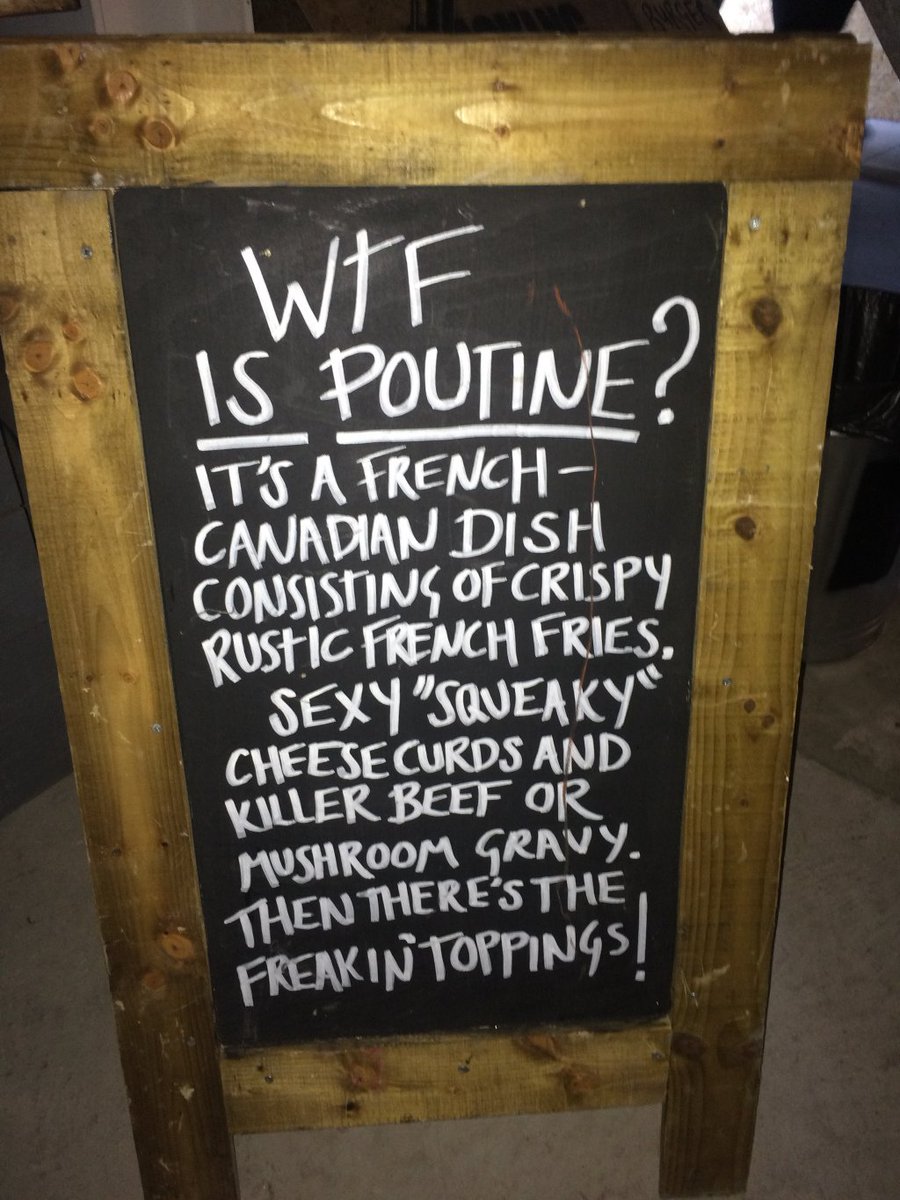 BURGER
WTF
IS POUTINE?
IT'S A FRENCH-
CANADIAN DISH
CONSISTING OF CRISPY
RUSTIC FRENCH FRIES.
SEXY "SQUEAKY"
CHEESE CURDS AND
KILLER BEEF OR
MUSHROOM GRAVY.
THEN THERE'S THE
FREAKIN' TOPPINGS!